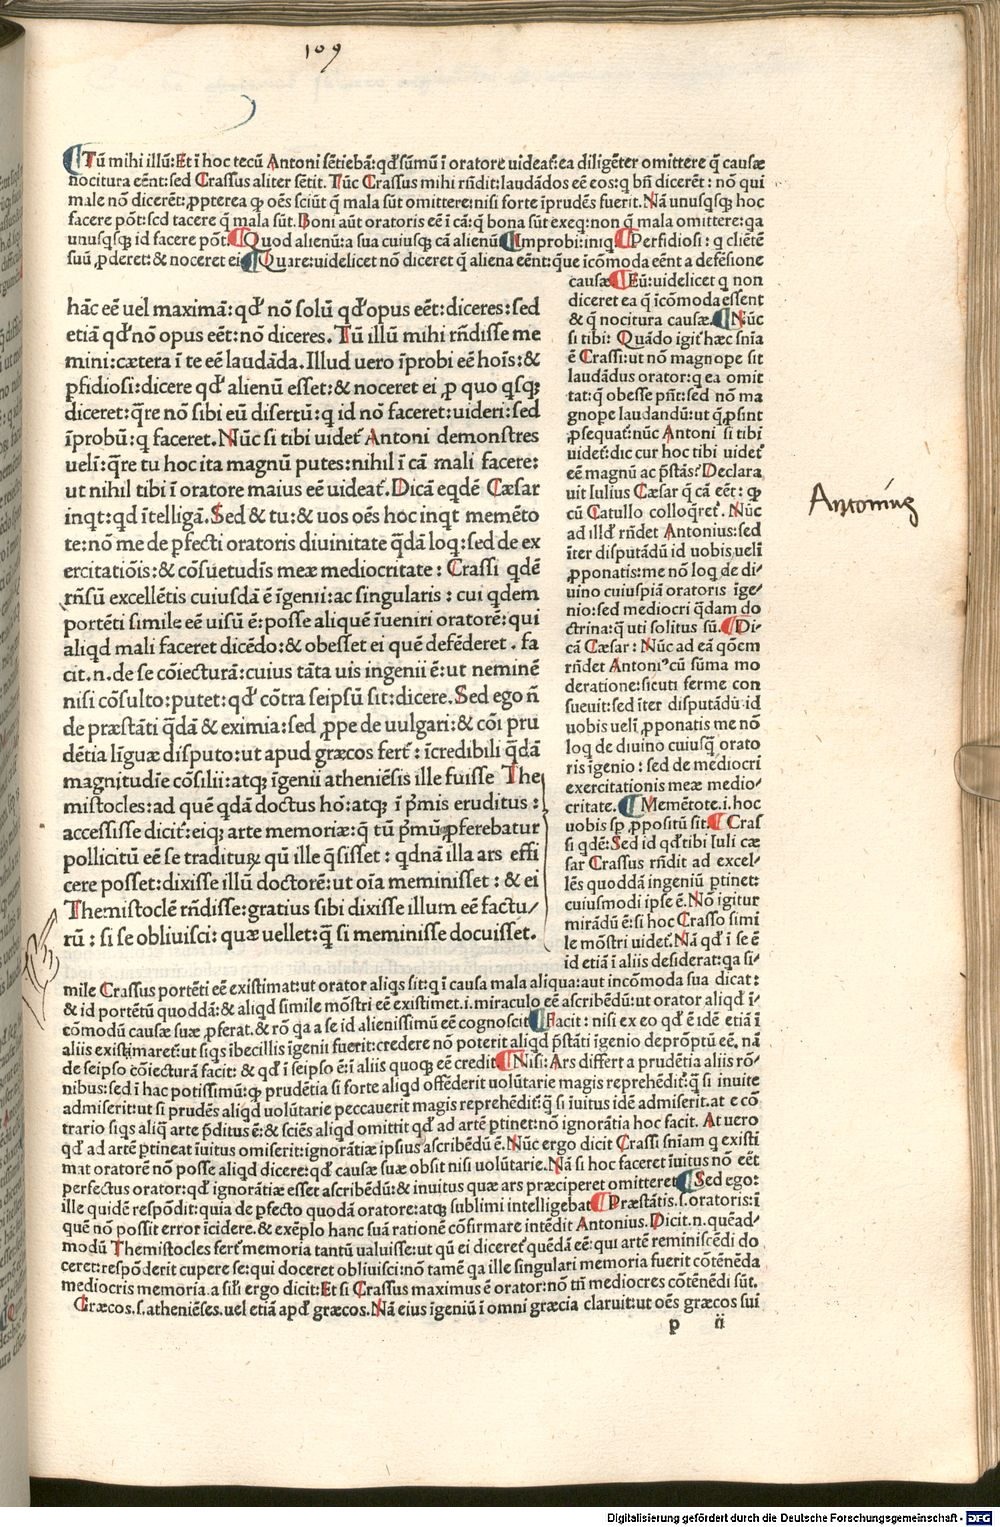 109
¶Tū mihi illū:Et ī hoc tecū Antoni sētiebā:qđ sūmū ī oratore uideat̄:ea diligēter omittere q̄ causæ
nocitura eēnt:sed Crassus aliter sētit. Tūc Crassus mihi rn̄dit:laudādos eē eos:q bn̄ dicerēt: nō qui
male nō dicerēt:ꝓpterea ꝙ oēs sciūt q̄ mala sūt omittere:nisi forte īprudēs fuerit. Nā unusqsꝗ hoc
facere pōt:sed tacere q̄ mala sūt. Boni aūt oratoris eē ī cā:q̄ bona sūt exeq:non q̄ mala omittere:qa
unusqsꝗ id facere pōt. ¶Quod alienū:a sua cuiusꝗ cā alienū ¶Improbi:iniq. ¶Perfidiosi: q cliētē
suū ꝓderet:& noceret ei ¶Quare:uidelicet nō diceret q̄ aliena eēnt:que īcōmoda eēnt a defēsione
hāc eē uel maximā:qđ nō solū qđ opus eēt:diceres:sed
etiā qđ nō opus eēt:nō diceres. Tū illū mihi rn̄disse me
mini:cætera ī te eē laudāda. Illud uero īprobi eē hoīs:&
ꝑfidiosi:dicere qđ alienū esset:& noceret ei ꝓ quo qsꝗ
diceret:q̄re nō sibi eū disertū:q id nō faceret:uideri:sed
īprobū:q faceret. Nūc si tibi uidet̄ Antoni demonstres
uelī:q̄re tu hoc ita magnū putes:nihil ī cā mali facere:
ut nihil tibi ī oratore maius eē uideat̄. Dicā eqdē Cæsar
inqt:qd ītelligā. Sed & tu:& uos oēs hoc inqt memēto
te:nō me de ꝑfecti oratoris diuinitate q̄dā loq:sed de ex
ercitatiōis:& cōsuetudīs meæ mediocritate: Crassi qdē
rn̄sū excellētis cuiusdā ē īgenii:ac singularis: cui qdem
portēti simile eē uisū ē:posse aliquē īueniri oratorē:qui
aliqd mali faceret dicēdo:& obesset ei quē defēderet. fa
cit.n.de se cōiecturā:cuius tāta uis ingenii ē:ut neminē
nisi cōsulto:putet:qđ cōtra seipsū sit:dicere. Sed ego n̄
de præstāti q̄dā & eximia:sed ꝓpe de uulgari:& cōi pru
dētia līguæ disputo:ut apud græcos fert̄: īcredibili q̄dā
magnitudīe cōsilii:atꝗ īgenii atheniēsis ille fuisse The
mistocles:ad quē qdā doctus hō:atꝗ ī p̄mis eruditus:
accessisse dicit̄:eiꝗ arte memoriæ:q̄ tū p̄mū ꝓferebatur
pollicitū eē se traditurꝝ qū ille q̄sisset: qdnā illa ars effi
cere posset:dixisse illū doctorē:ut oīa meminisset: & ei
Themistoclē rn̄disse:gratius sibi dixisse illum eē factu/
rū: si se obliuisci: quæ uellet:q̄ si meminisse docuisset.
causæ ¶Eū:uidelicet q non
diceret ea q̄ īcōmoda essent
& q̄ nocitura causæ. ¶Nūc
si tibi: Quādo igit̄ hæc sn̄ia
ē Crassi:ut nō magnope sit
laudādus orator:q ea omit
tat:q̄ obesse pn̄t:sed nō ma
gnope laudandū:ut q̄ ꝓsint
ꝓsequat̄:nūc Antoni si tibi
uidet̄:dic cur hoc tibi uidet̄
eē magnū ac p̄stās? Declara
uit Iulius Cæsar q̄ cā eēt: ꝙ
cū Catullo colloq̄ret̄. Nūc
ad illđ rn̄det Antonius:sed
īter disputādū id uobis uelī
ꝓponatis:me nō loq de di/
uino cuiuspiā oratoris ige/
nio:sed mediocri q̄dam do
ctrina:q̄ uti solitus sū. ¶Di/
cā Cæsar: Nūc ad eā qōem
rn̄det Antoniꝰ cū sūma mo
deratione:sicuti ferme con
sueuit:sed īter disputādū id
uobis uelī ꝓponatis me nō
loq de diuino cuiusq̄ orato
ris īgenio: sed de mediocri
exercitationis meæ medio/
critate. ¶Memētote.i.hoc
uobis sp̄ ꝓpositū sit. ¶Cras
si qdē:Sed id qđ tibi Iuli cæ
sar Crassus rn̄dit ad excel/
lēs quoddā ingeniū ptinet:
cuiusmodi ipse ē. Nō igitur
mirādū ē:si hoc Crasso simi
le mōstri uidet̄. Nā qđ ī se ē
id etiā ī aliis desiderat:qa si/
Antonius
mile Crassus portēti eē existimat:ut orator aliqs sit:q ī causa mala aliqua:aut incōmoda sua dicat:
& id portētū quoddā:& aliqd simile mōstri eē existimet.i.miraculo eē ascribēdū:ut orator aliqd ī/
cōmodū causæ suæ ꝓferat.& rō qa a se id alienissimū eē cognoscit ¶Facit: nisi ex eo qđ ē idē etiā ī
aliis existimaret:ut siqs ībecillis īgenii fuerit:credere nō poterit aliqd p̄stāti īgenio deprōptū eē. nā
de seipso cōiecturā facit: & qđ ī seipso ē:ī aliis quoꝗ eē credit ¶Nisi: Ars differt a prudētia aliis rō/
nibus:sed ī hac potissimū:ꝙ prudētia si forte aliqd offēderit uolūtarie magis reprehēdit̄:q̄ si inuite
admiserit:ut si prudēs aliqd uolūtarie peccauerit magis reprehēdit̄:q̄ si īuitus idē admiserit.at e cō
trario siqs aliq̄ arte p̄ditus ē:& sciēs aliqd omittit qđ ad artē ptinet:nō ignorātia hoc facit. At uero
qđ ad artē ptineat īuitus omiserit:ignorātiæ ipsius ascribēdū ē. Nūc ergo dicit Crassi sn̄iam q existi
mat oratorē nō posse aliqd dicere:qđ causæ suæ obsit nisi uolūtarie. Nā si hoc faceret īuitus nō eēt
perfectus orator:qđ ignorātiæ esset ascribēdū:& inuitus quæ ars præciperet omitteret ¶Sed ego:
ille quidē respōdit:quia de ꝑfecto quodā oratore:atꝗ sublimi intelligebat ¶Præstātis.s.oratoris:ī
quē nō possit error īcidere.& exēplo hanc suā rationē cōfirmare intēdit Antonius. Dicit.n.quēad/
modū Themistocles fert̄ memoria tantū ualuisse:ut qū ei diceret̄ quēdā eē: qui artē reminiscēdi do
ceret:respōderit cupere se:qui doceret obliuisci:nō tamē qa ille singulari memoria fuerit cōtēnēda
mediocris memoria.a sili ergo dicit:Et si Crassus maximus ē orator:nō tn̄ mediocres cōtēnēdi sūt.
Græcos.s.atheniēses.uel etiā apđ græcos. Nā eius īgeniū ī omni græcia claruit:ut oēs græcos sui
p ii
Digitalisierung gefördert durch die Deutsche Forschungsgemeinschaft - DFG